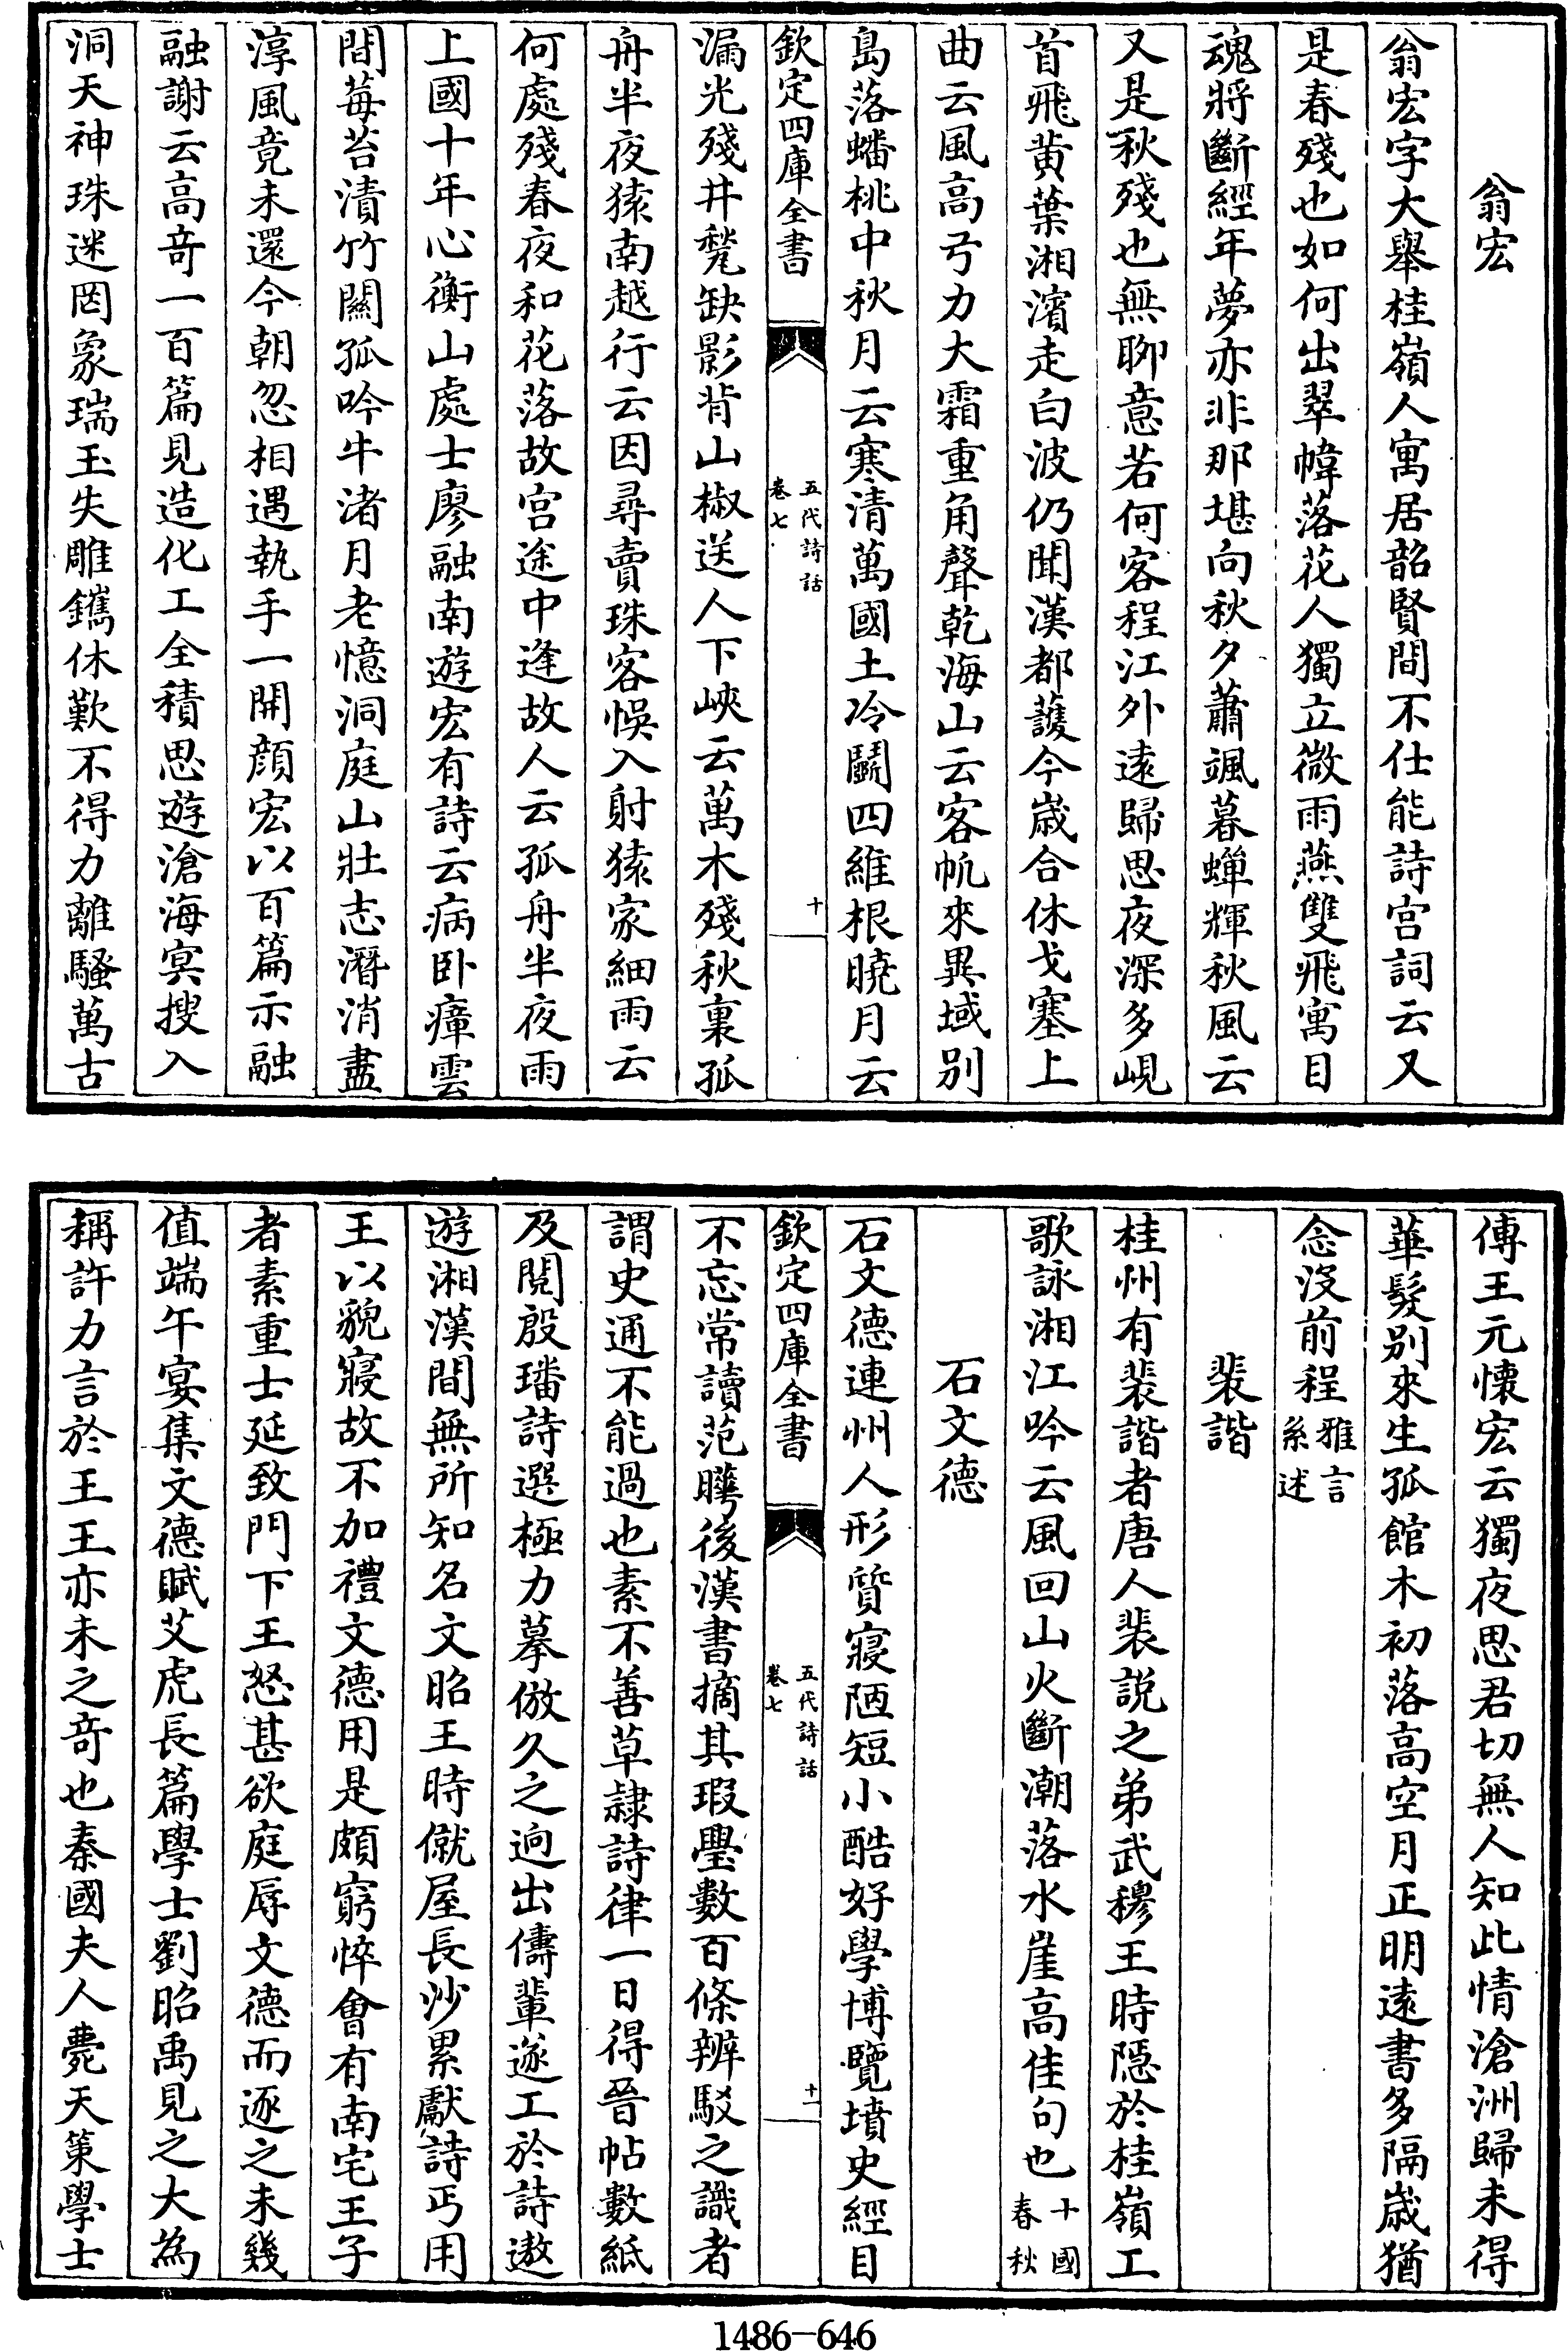 翁宏
翁宏字大舉桂嶺人寓居韶賢間不仕能詩宫詞云又
是春殘也如何出翠幃落花人獨立微雨燕雙飛寓目
魂將斷經年夢亦非那堪向秋夕蕭颯暮蟬輝秋風云
又是秋殘也無聊意若何客程江外逺歸思夜深多峴
首飛黄葉湘濱走白波仍聞漢都䕶今嵗合休戈塞上
曲云風高弓力大霜重角聲乾海山云客帆來異域别
島落蟠桃中秋月云寒清萬國土冷鬭四維根曉月云
欽定四庫全書
五代詩話
卷七
十
漏光殘井甃缺影背山椒送人下峽云萬木殘秋裏孤
舟半夜猿南越行云因尋賣珠客悞入射猿家細雨云
何處殘春夜和花落故宫途中逢故人云孤舟半夜雨
上國十年心衡山處士廖融南遊宏有詩云病卧瘴雲
間莓苔漬竹闗孤吟牛渚月老憶洞庭山壯志潛消盡
淳風竟未還今朝忽相遇執手一開顔宏以百篇示融
融謝云高竒一百篇見造化工全積思遊滄海㝠搜入
洞天神珠迷罔象瑞玉失雕鐫休歎不得力離騷萬古
傳王元懐宏云獨夜思君切無人知此情滄洲歸未得
華髮别來生孤館木初落高空月正明逺書多隔嵗猶
念沒前程雅言
系述
裴諧
桂州有裴諧者唐人裴説之弟武穆王時隠於桂嶺工
歌詠湘江吟云風回山火斷潮落水崖高佳句也十國
春秋
石文德
石文德連州人形質寢陋短小酷好學博覽墳史經目
欽定四庫全書
五代詩話
卷七
十一
不忘常讀范曄後漢書摘其瑕舋數百條辨駁之識者
謂史通不能過也素不善草隷詩律一日得晉帖數紙
及閲殷璠詩選極力摹倣久之逈出儔輩遂工於詩遨
遊湘漢間無所知名文昭王時僦屋長沙累獻詩丐用
王以貌寢故不加禮文德用是頗窮悴會有南宅王子
者素重士延致門下王怒甚欲庭辱文德而逐之未幾
值端午宴集文德賦艾虎長篇學士劉昭禹見之大為
稱許力言於王王亦未之竒也秦國夫人薨天策學士
1486-646